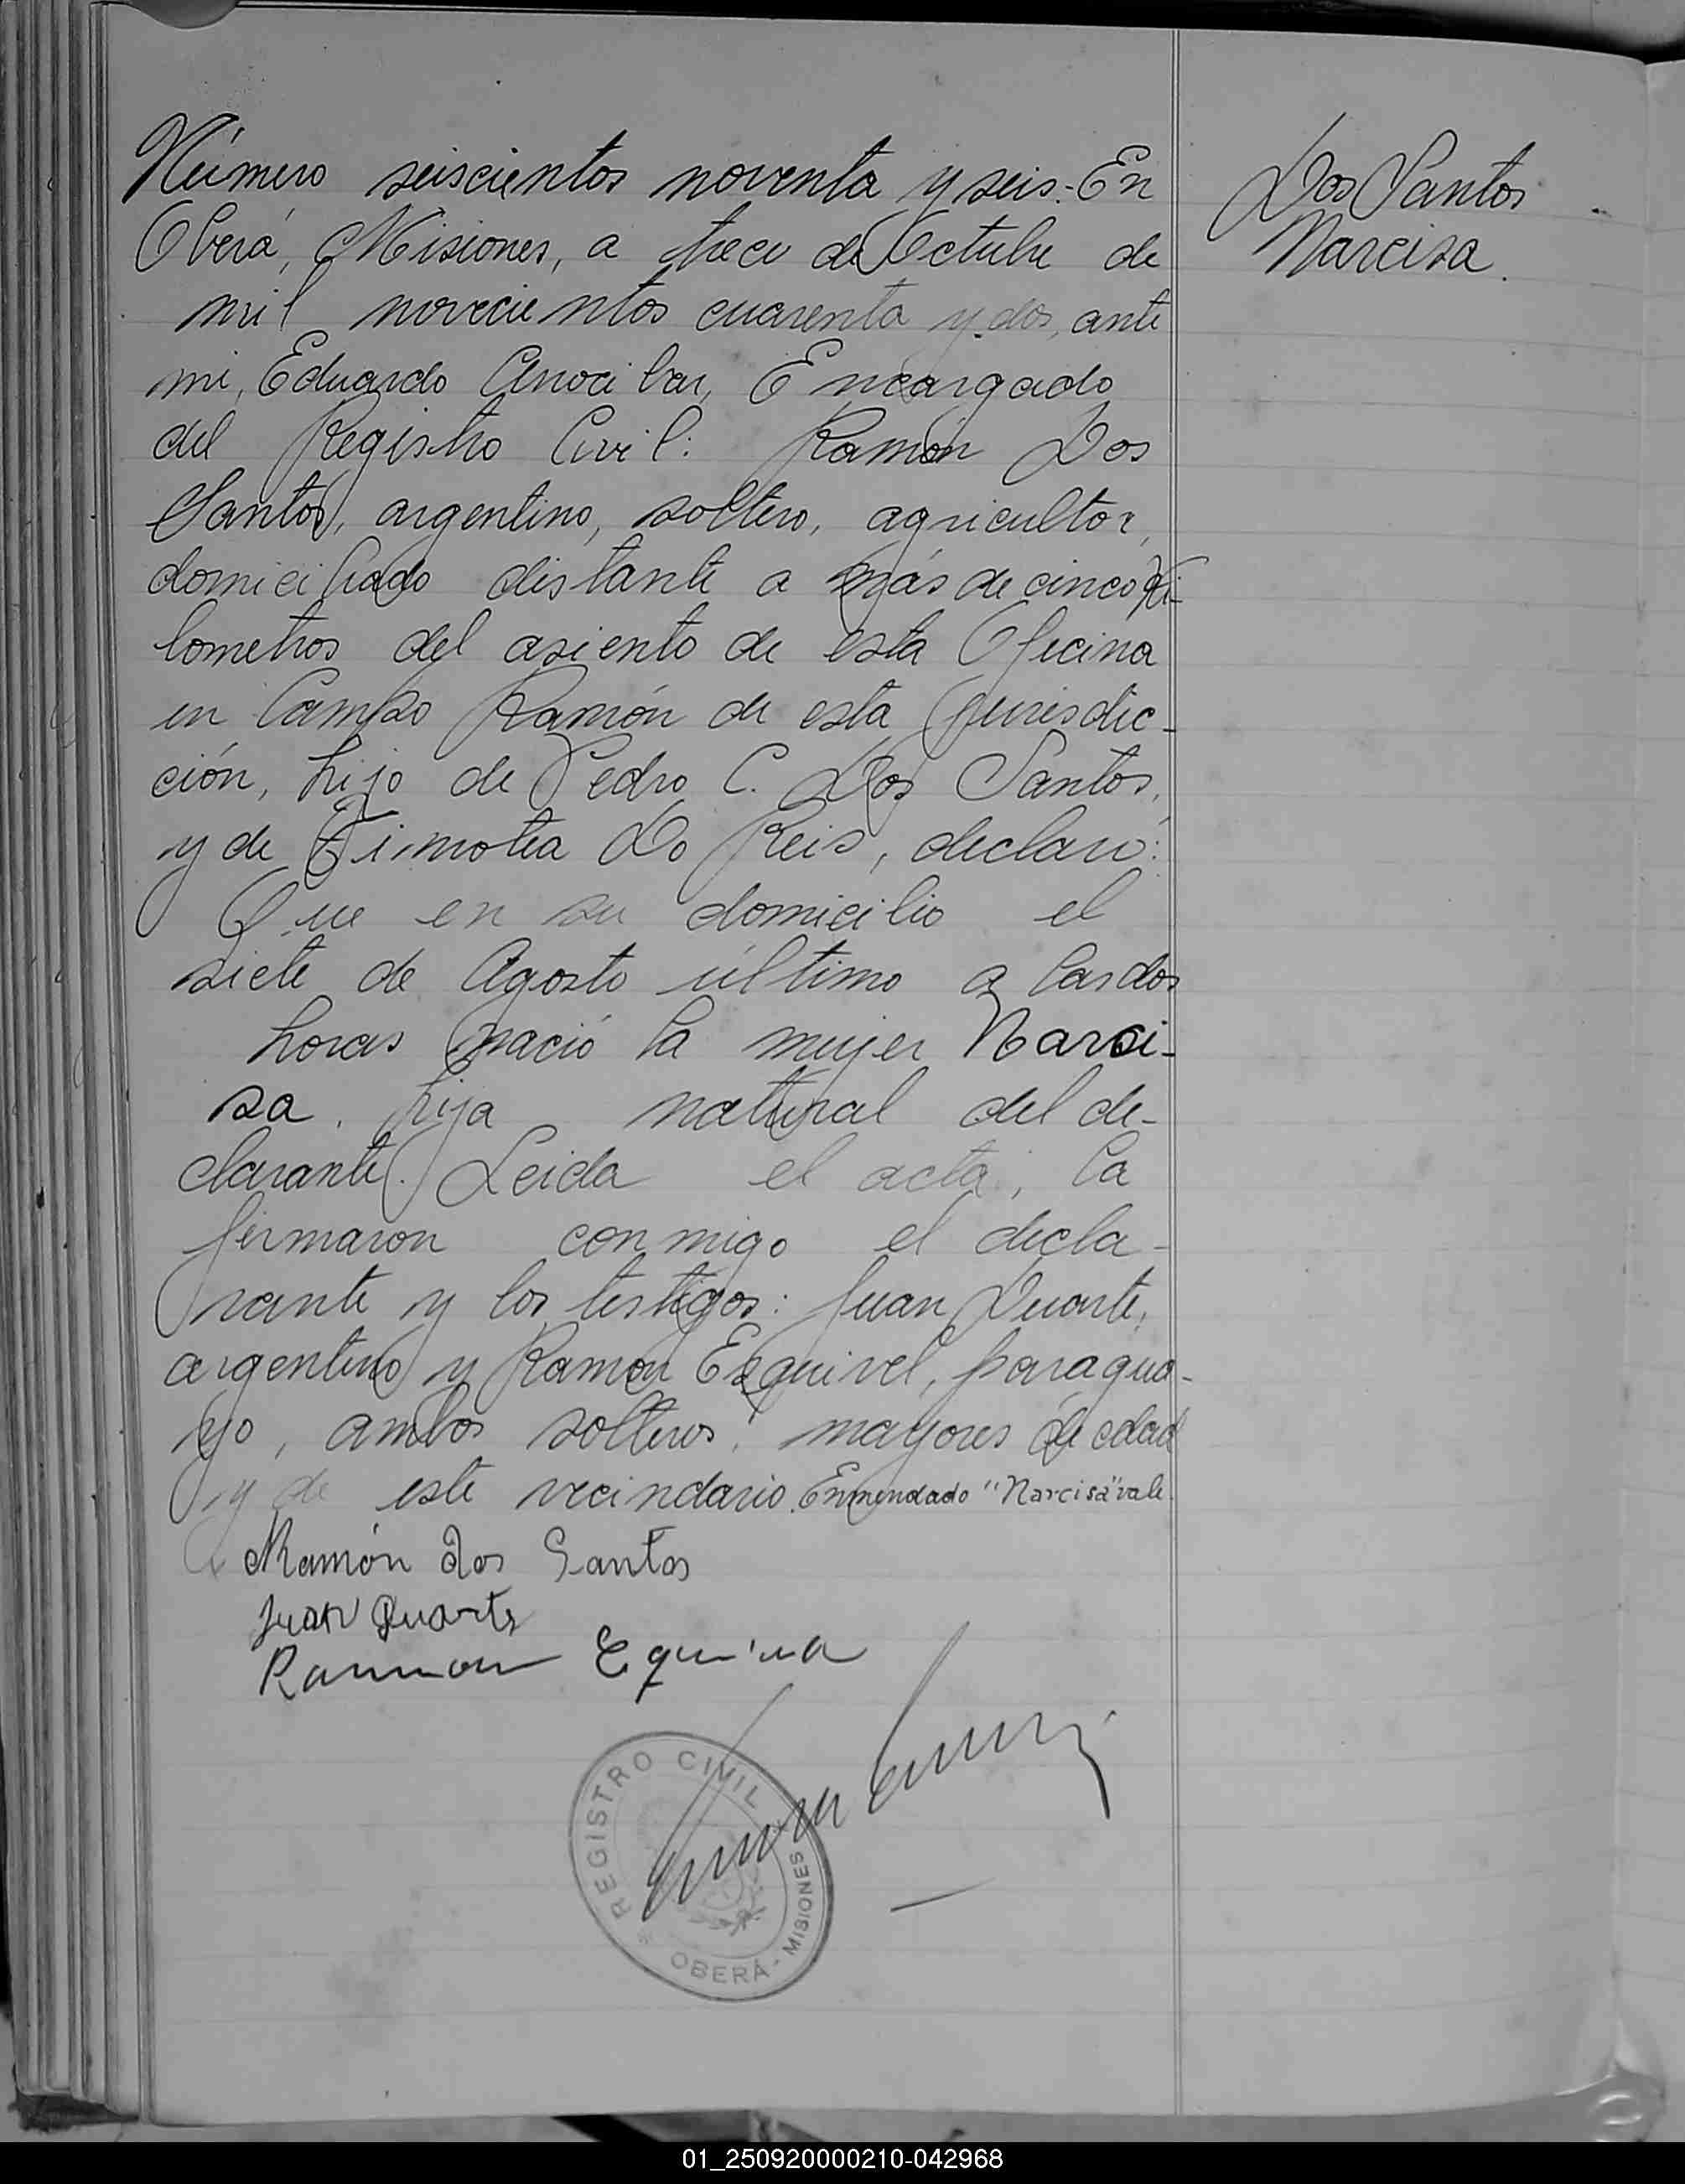 Número seiscientos noventa y seis.- En
Oberá, Misiones, a trece de Octubre de
mil novecientos cuarenta y dos, ante
mi, Eduardo Anocibar, Encargado
del Registro Civil: Ramón Dos
Santos, argentino, soltero, agricultor,
domiciliado distante a más de cinco ki-
lometros del asiento de esta Oficina
en Campo Ramón de esta jurisdic-
ción, hijo de Pedro C. Dos Santos,
y de Timotea Do Reis, declaró:
Que en su domicilio el
siete de Agosto último a las dos
horas nació la mujer Narci-
sa, hija natural del de-
clarante. Leida el acta, la
firmaron conmigo el decla-
rante y los testigos: Juan Duarte,
argentino y Ramon Esquivel, paragua-
yo, ambos solteros, mayores de edad
y de este vecindario. Enmendado "Narcisa" vale.
Ramón dos Santos
Juan Duarte
Ramon
Dos Santos
Narcisa.
REGISTRO CIVIL
OBERÁ - MISIONES
01_250920000210-042968